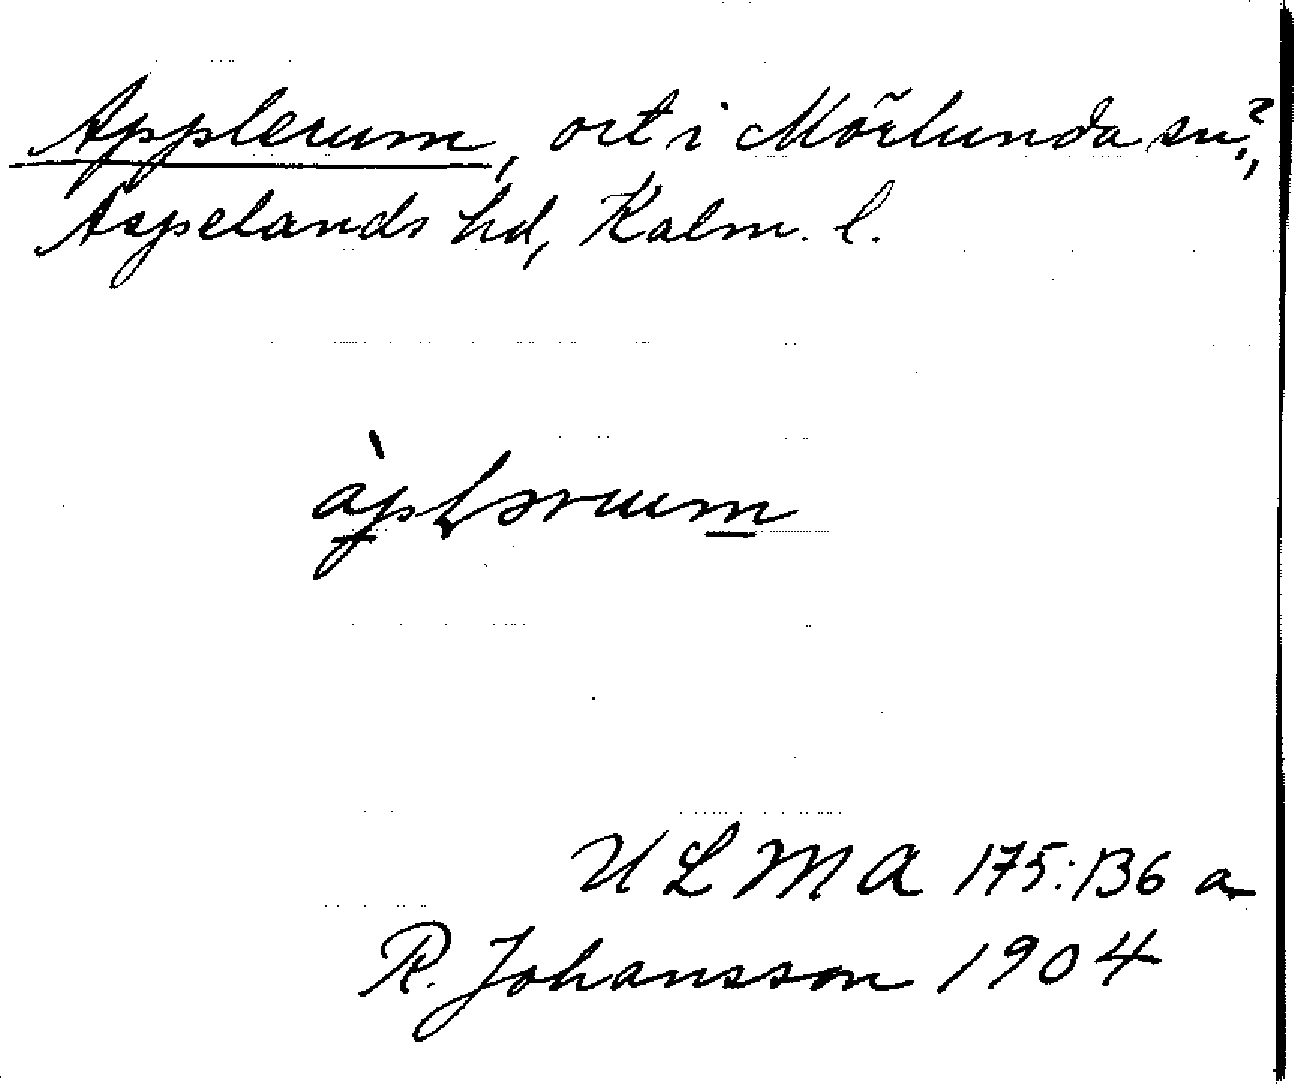 Applerum, ort i Mörlunda sn?,
Aspelands hd, Kalm. l.
àpḷərum
ULMA 175:136 a
R. Johansson 1904